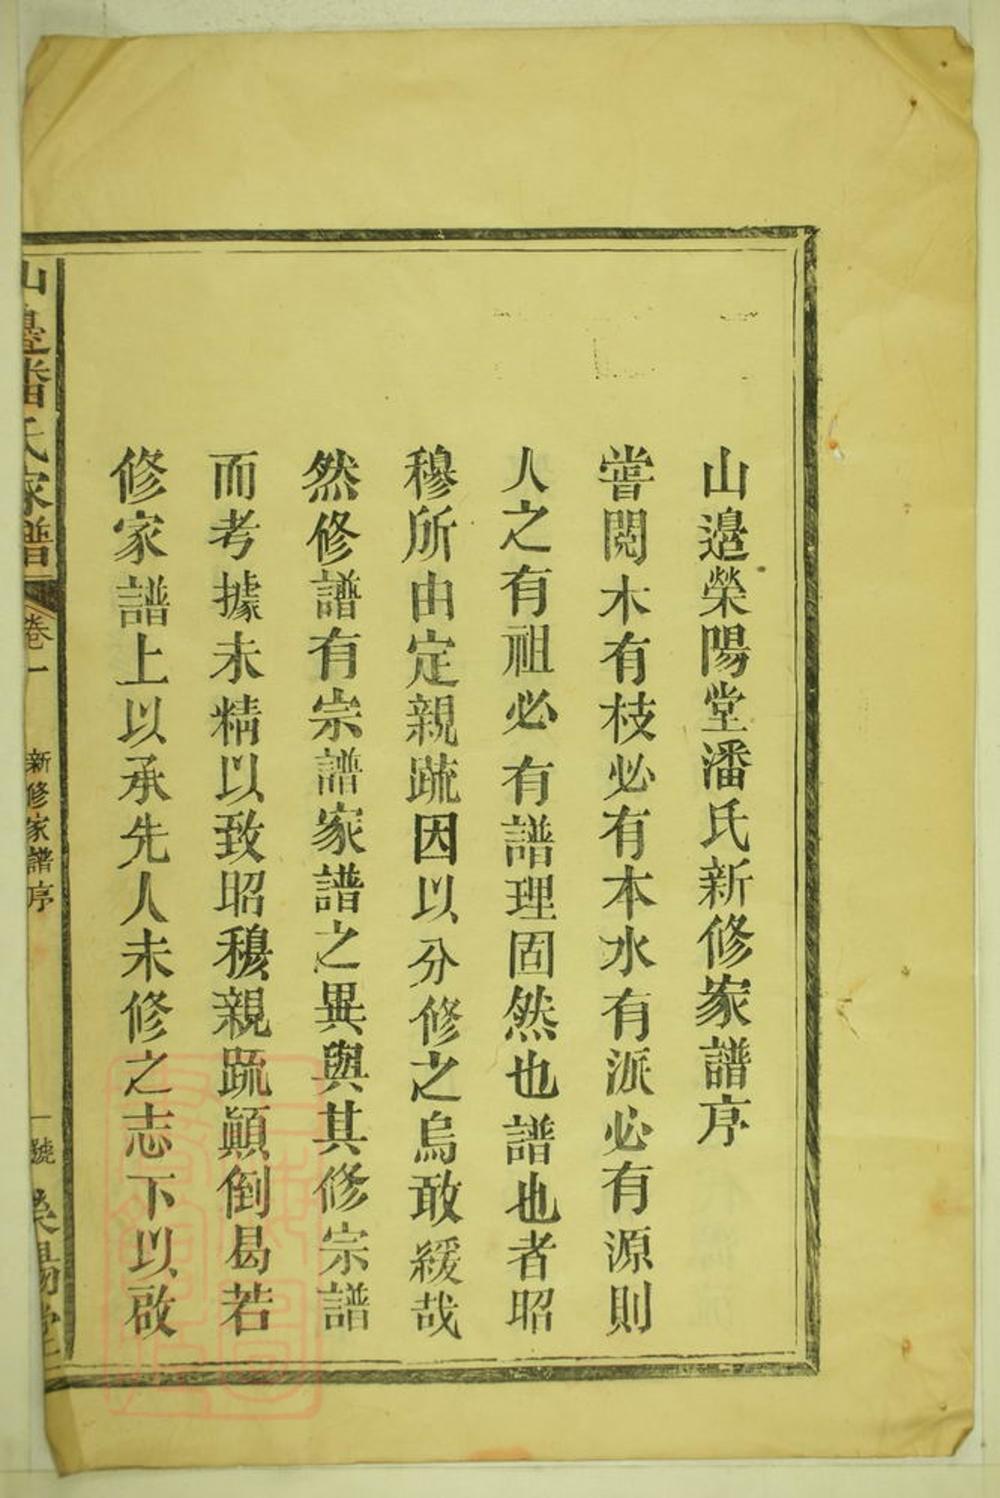 山邉榮陽堂潘氏新修家譜序
嘗閱木有枝必有本水有派必有源則
人之有祖必有譜理固然也譜也者昭
穆所由定親䟽因以分修之烏敢緩哉
然修譜有宗譜家譜之異與其修宗譜
而考據未精以致昭穆親䟽顛倒曷若
修家譜上以承先人未修之志下以啟
山邉潘氏家譜
卷一
新修家譜序
一號
榮陽堂